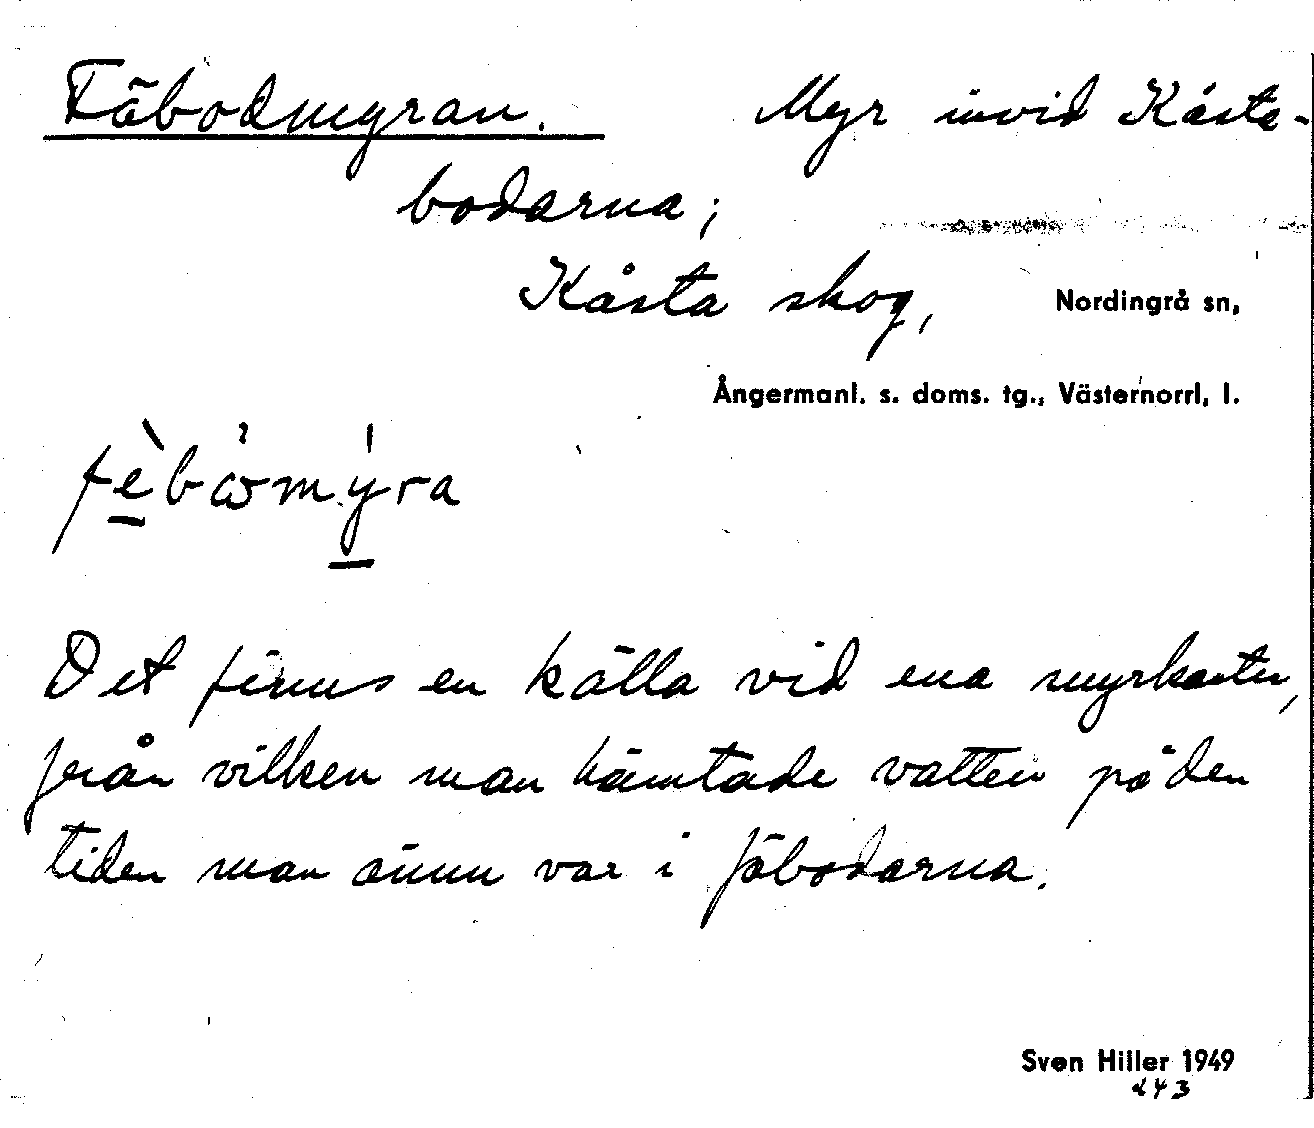 Fäbodmyran. Myr invid Kåsta-
bodarna;
Kåsta skog, Nordingrå sn,
Ångermanl. s. doms. tg., Västernorrl. l.
fèbὼmýra
Det finns en källa vid ena myrkanten,
från vilken man hämtade vatten på den
tiden man ännu var i fäbodarna.
Sven Hiller 1949
243